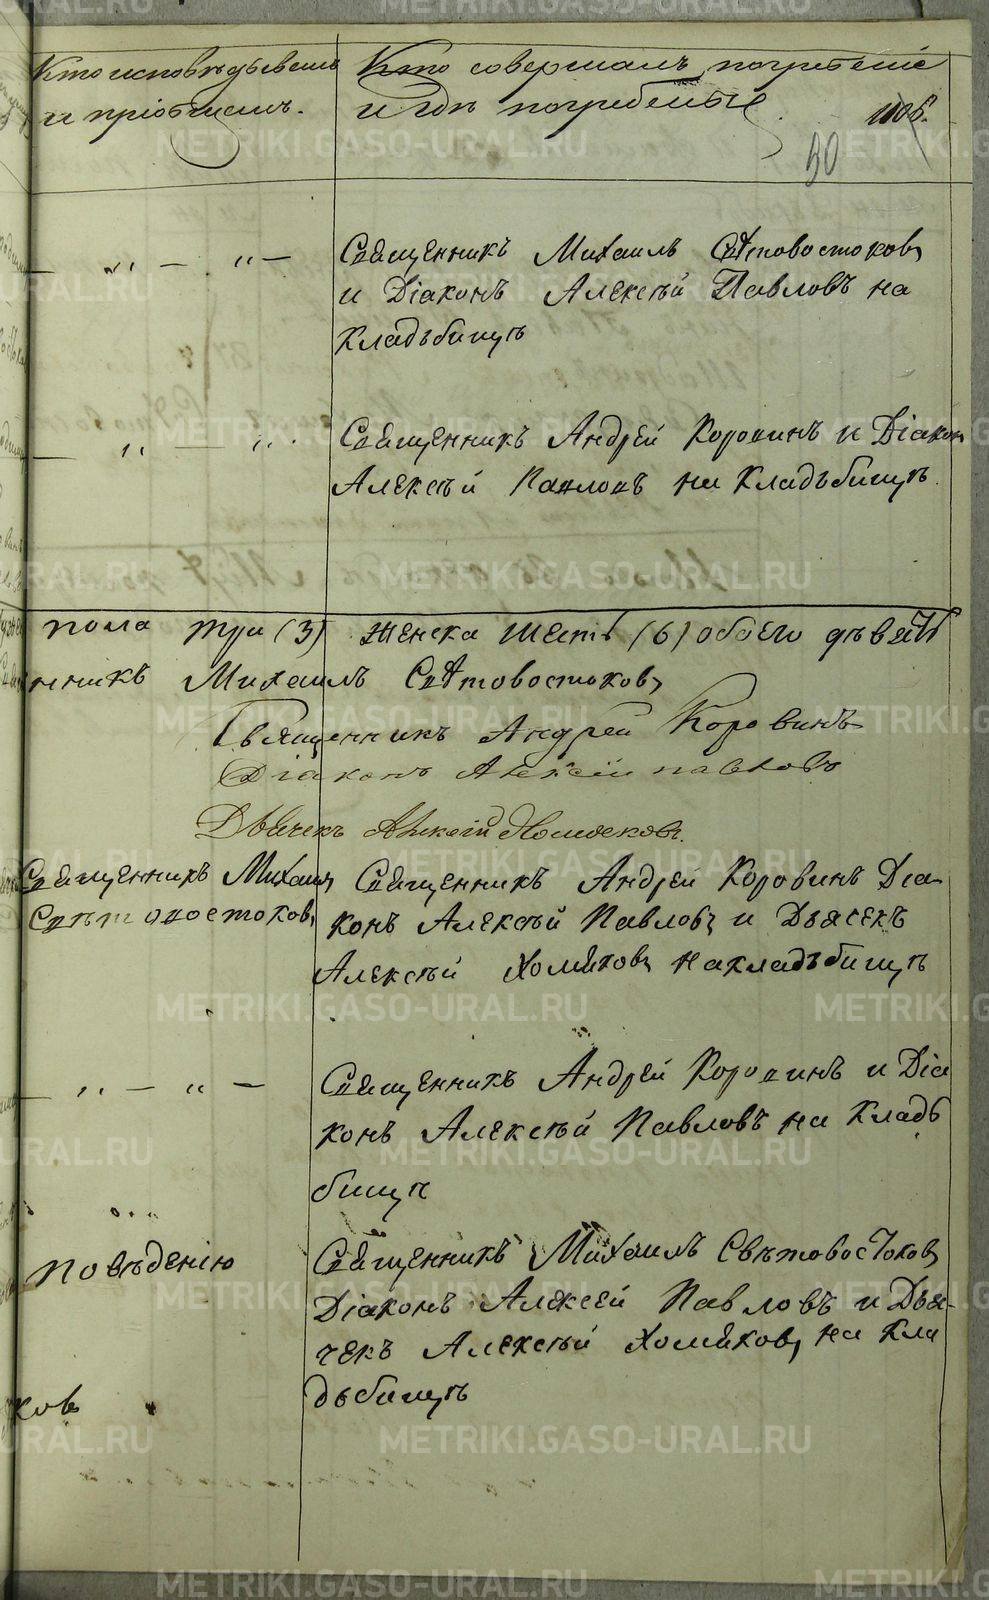 Кто исповѣдывалъ
и пріобщалъ.
Кто совершалъ погребеніе
и гдѣ погребены
50
— „ — „ —
Священникъ Михаилъ Свѣтовостоковъ
и Діаконъ Алексѣй Павловъ на
Кладьбищѣ
— „ — „
Священникъ Андрей Коровинъ и Діаконъ
Алексѣй Павловъ на Кладьбищѣ
пола три (3) женска шесть (6) обоего дѣвять
нникъ Михаилъ Свѣтовостоковъ
Священникъ Андрей Коровинъ
Діаконъ Алексій Павловъ
Дьячекъ Алексій Хомяковъ.
Священникъ Михаилъ
Свѣтовостоковъ
Священникъ Андрей Коровинъ Діа-
конъ Алексѣй Павловъ и Дьячекъ
Алексѣй Хомяковъ на кладьбищѣ
— „ — „ —
Священникъ Андрей Коровинъ и Діа
конъ Алексѣй Павловъ на Кладь
бищѣ
По вѣденію
Священникъ Михаилъ Свѣтовостоковъ
Діаконъ Алексей Павловъ и Дья-
чекъ Алексѣй Хомяковъ на Кла
дьбищѣ
ков
METRIKI.GASO-URAL.RU